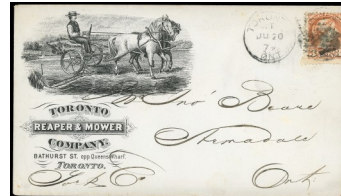 TORONTO
JU 20
ONT.
Mr Jno' Beare
TORONTO
REAPER & MOWER
COMPANY.
BATHURST ST. opp Queens Wharf.
TORONTO.
Armadale
York Co
Ont